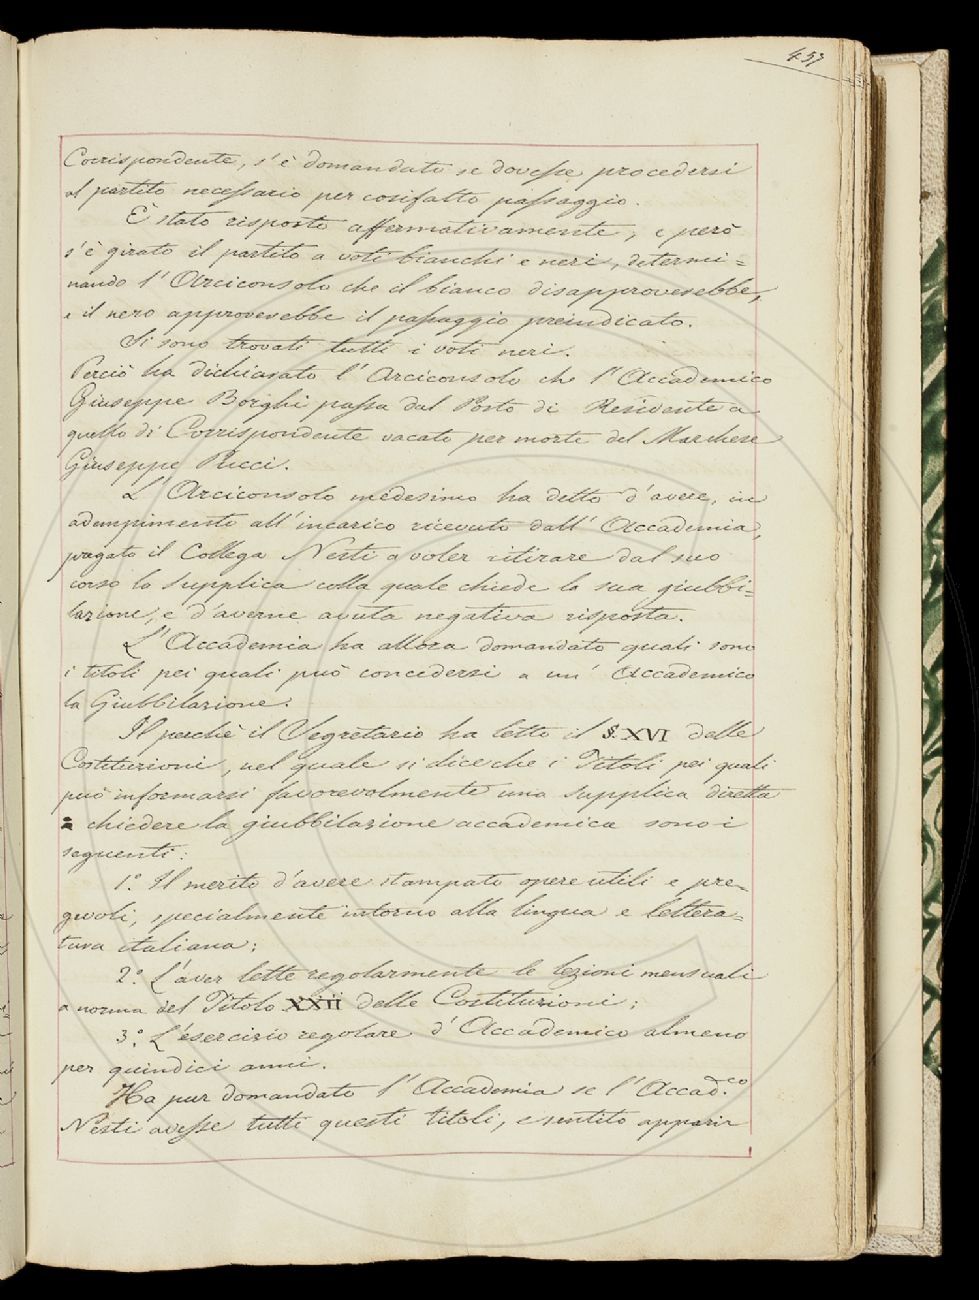 453
Corrispondente, s'è domandato se dovesse procedersi
al partito necessario per cosifatto passaggio.
È stato risposto affermativamente, e però
s'è girato il partito a voti bianchi e neri, determi=
nando l'Arciconsolo che il bianco disapproverebbe,
e il nero approverebbe il passaggio preindicato.
Si sono trovati tutti i voti neri.
Perciò ha dichiarato l'Arciconsolo che l'Accademico
Giuseppe Borghi passa dal Posto di Residente a
quello di Corrispondente vacato per morte del Marchese
Giuseppe Pucci.
L'Arciconsolo medesimo ha detto d'avere, in
adempimento all'incarico ricevuto dall'Accademia,
pregato il Collega Nesti a voler ritirare dal suo
corso la supplica colla quale chiede la sua giubbi=
lazione, e d'averne avuta negativa risposta.
L'Accademia ha allora domandato quali sono
i titoli pei quali può concedersi a un' Accademico
la Giubbilazione.
Il perchè il Segretario ha letto il §. XVI delle
Costituzioni, nel quale si dice che i Titoli pei quali
può informarsi favorevolmente una supplica diretta
a chiedere la giubbilazione accademica sono i
seguenti:
1.° Il merito d'avere stampato opere utili e pre=
gevoli, specialmente intorno alla lingua e lettera=
tura italiana;
2.° L'aver lette regolarmente le lezioni mensuali
a norma del Titolo XXII delle Costituzioni;
3.° L'esercizio regolare d'Accademico almeno
per quindici anni.
Ha pur domandato l'Accademia se l'Accad.co
Nesti avesse tutti questi titoli, e sentito apparir